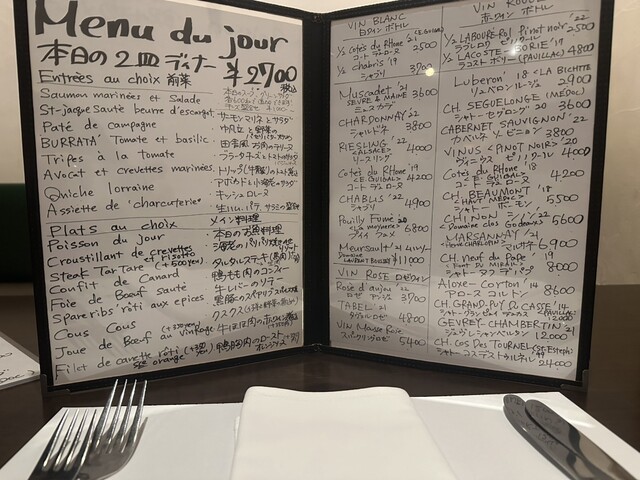 Menu du jour
本日の2皿ディナー ¥2700 税込
Entrées au choix 前菜
Saumon marinées et Salade
サーモンマリネとサラダ
St-jacque Sauté beurre d'escargot
Paté de campagne
田舎風お肉のテリーヌ
BURRATA' Tomate et basilic
ブラータチーズとトマトのサラダ
Tripes à la tomate
トリップ(牛胃)のトマト煮込
Avocat et crevettes marinées
アボカドと小海老のサラダ
Quiche lorraine
キッシュロレーヌ
Assiette de 'charcuterie'
生ハム、パテ、サラミの盛合せ
Plats au choix
メイン料理
Poisson du jour
本日のお魚料理
Croustillant de crevettes et Risotto
Steak TarTare (+500yen)
タルタルステキ
Confit de Canard
鴨もも肉のコンフィー
Foie de Boeuf sauté
牛レバーのソテー
Spare ribs rôti aux epices
Cous Cous
クスクス
Joue de Boeuf au vintage
Filet de canette rôti sce orange
鴨胸肉のロースト オレンジソース
VIN BLANC
白ワイン ボトル
½ Cotés du Rhone '21 (E.GUIGAL)
コートデュローヌ 2500
½ chabris '19
シャブリ 3700
Muscadet '21
SEVRE & MAINE 3600
ミュスカデ
CHARDONNAY '22
シャルドネ 3800
RIESLING '22
<ALSACE> 4000
リースリング
Cotés du Rhône '19
<E.GUIGAL> 4200
コートデュローヌ
CHABLIS '22
シャブリ 4900
Pouilly Fumé '20
<La moynerie> 6800
プイイ フュメ
Meursault '21 ムルソー
Domaine LAURENT BOUSSEY ¥11000
VIN ROSE ロゼワイン
Rose d'anjou '22
ロゼ アンジュ 3700
TABEL '21
タヴェルロゼ 4800
Vin Mousse Rose
スパークリングロゼ 5400
VIN ROUGE
赤ワイン ボトル
½ LABOURE-ROI Pinot noir '22
ラブレロワ ピノノワール 2500
½ LACOSTE-BORIE '19
ラコスト ボリー (PAUILLAC) 4800
Luberon '18 <LA BICHETTE>
リュベロン ルージュ 2900
CH. SEGUELONGE (MEDOC)
シャトーセグロング 3600
CABERNET SAUVIGNON '22
カベルネ ソービニヨン 3800
VINUS <PINOT NOIR> '20
ヴィニウス ピノノワール 4000
Cotés du Rhône '18
<E.GUIGAL> 4200
コートデュローヌ
CH BEAUMONT '18
<HAUT MEDOC> 5500
シャトー ボーモン
CHINON シノン '22
<Domaine clos Godeaux> 5600
MARSANNAY '21
マルサネ 6900
CH. neuf du Pape '19
シャトー ヌフ デュ パプ 8000
Aloxe-Corton '14
アロース コルトン 8600
CH. GRAND-PUY DUCASSE '14
<PAUILLAC> 12000
GEVREY-CHAMBERTIN '21
ジュヴレシャンベルタン 12000
CH. COS DES TOURNEL <ST.Estèphe>
シャトーコスデストゥルネル 24000